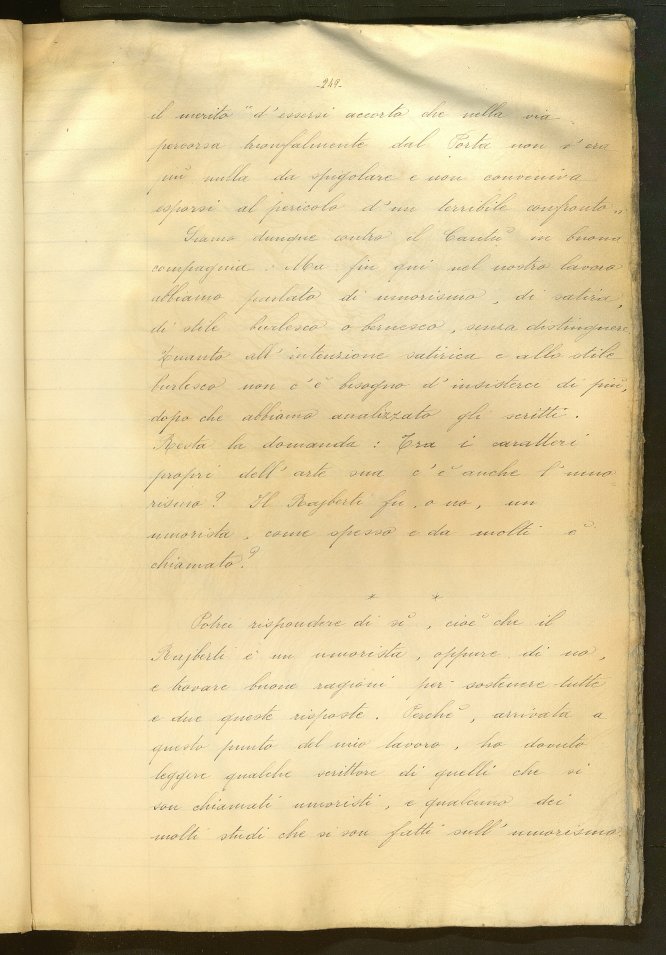 -249-
il merito "d'essersi accorto che nella via
percorsa trionfalmente dal Porta non v'era
più nulla da spigolare e non conveniva
esporsi al pericolo d'un terribile confronto".
Siamo dunque contro il Cantù in buona
compagnia. Ma fin qui nel nostro lavoro
abbiamo parlato di umorismo, di satira,
di stile burlesco o bernesco, senza distinguere.
Quanto all'intenzione satirica e allo stile
burlesco non c'è bisogno d'insisterci di più,
dopo che abbiamo analizzato gli scritti.
Resta la domanda: Tra i caratteri
propri dell'arte sua c'è anche l'umo-
rismo? Il Rajberti fu, o no, un
umorista, come spesso e da molti è
chiamato?
* *
Potrei rispondere di sì, cioè che il
Rajberti è un umorista, oppure di no,
e trovare buone ragioni per sostenere tutte
e due queste risposte. Perchè, arrivata a
questo punto del mio lavoro, ho dovuto
leggere qualche scrittore di quelli che si
son chiamati umoristi, e qualcuno dei
molti studi che si son fatti sull'umorismo